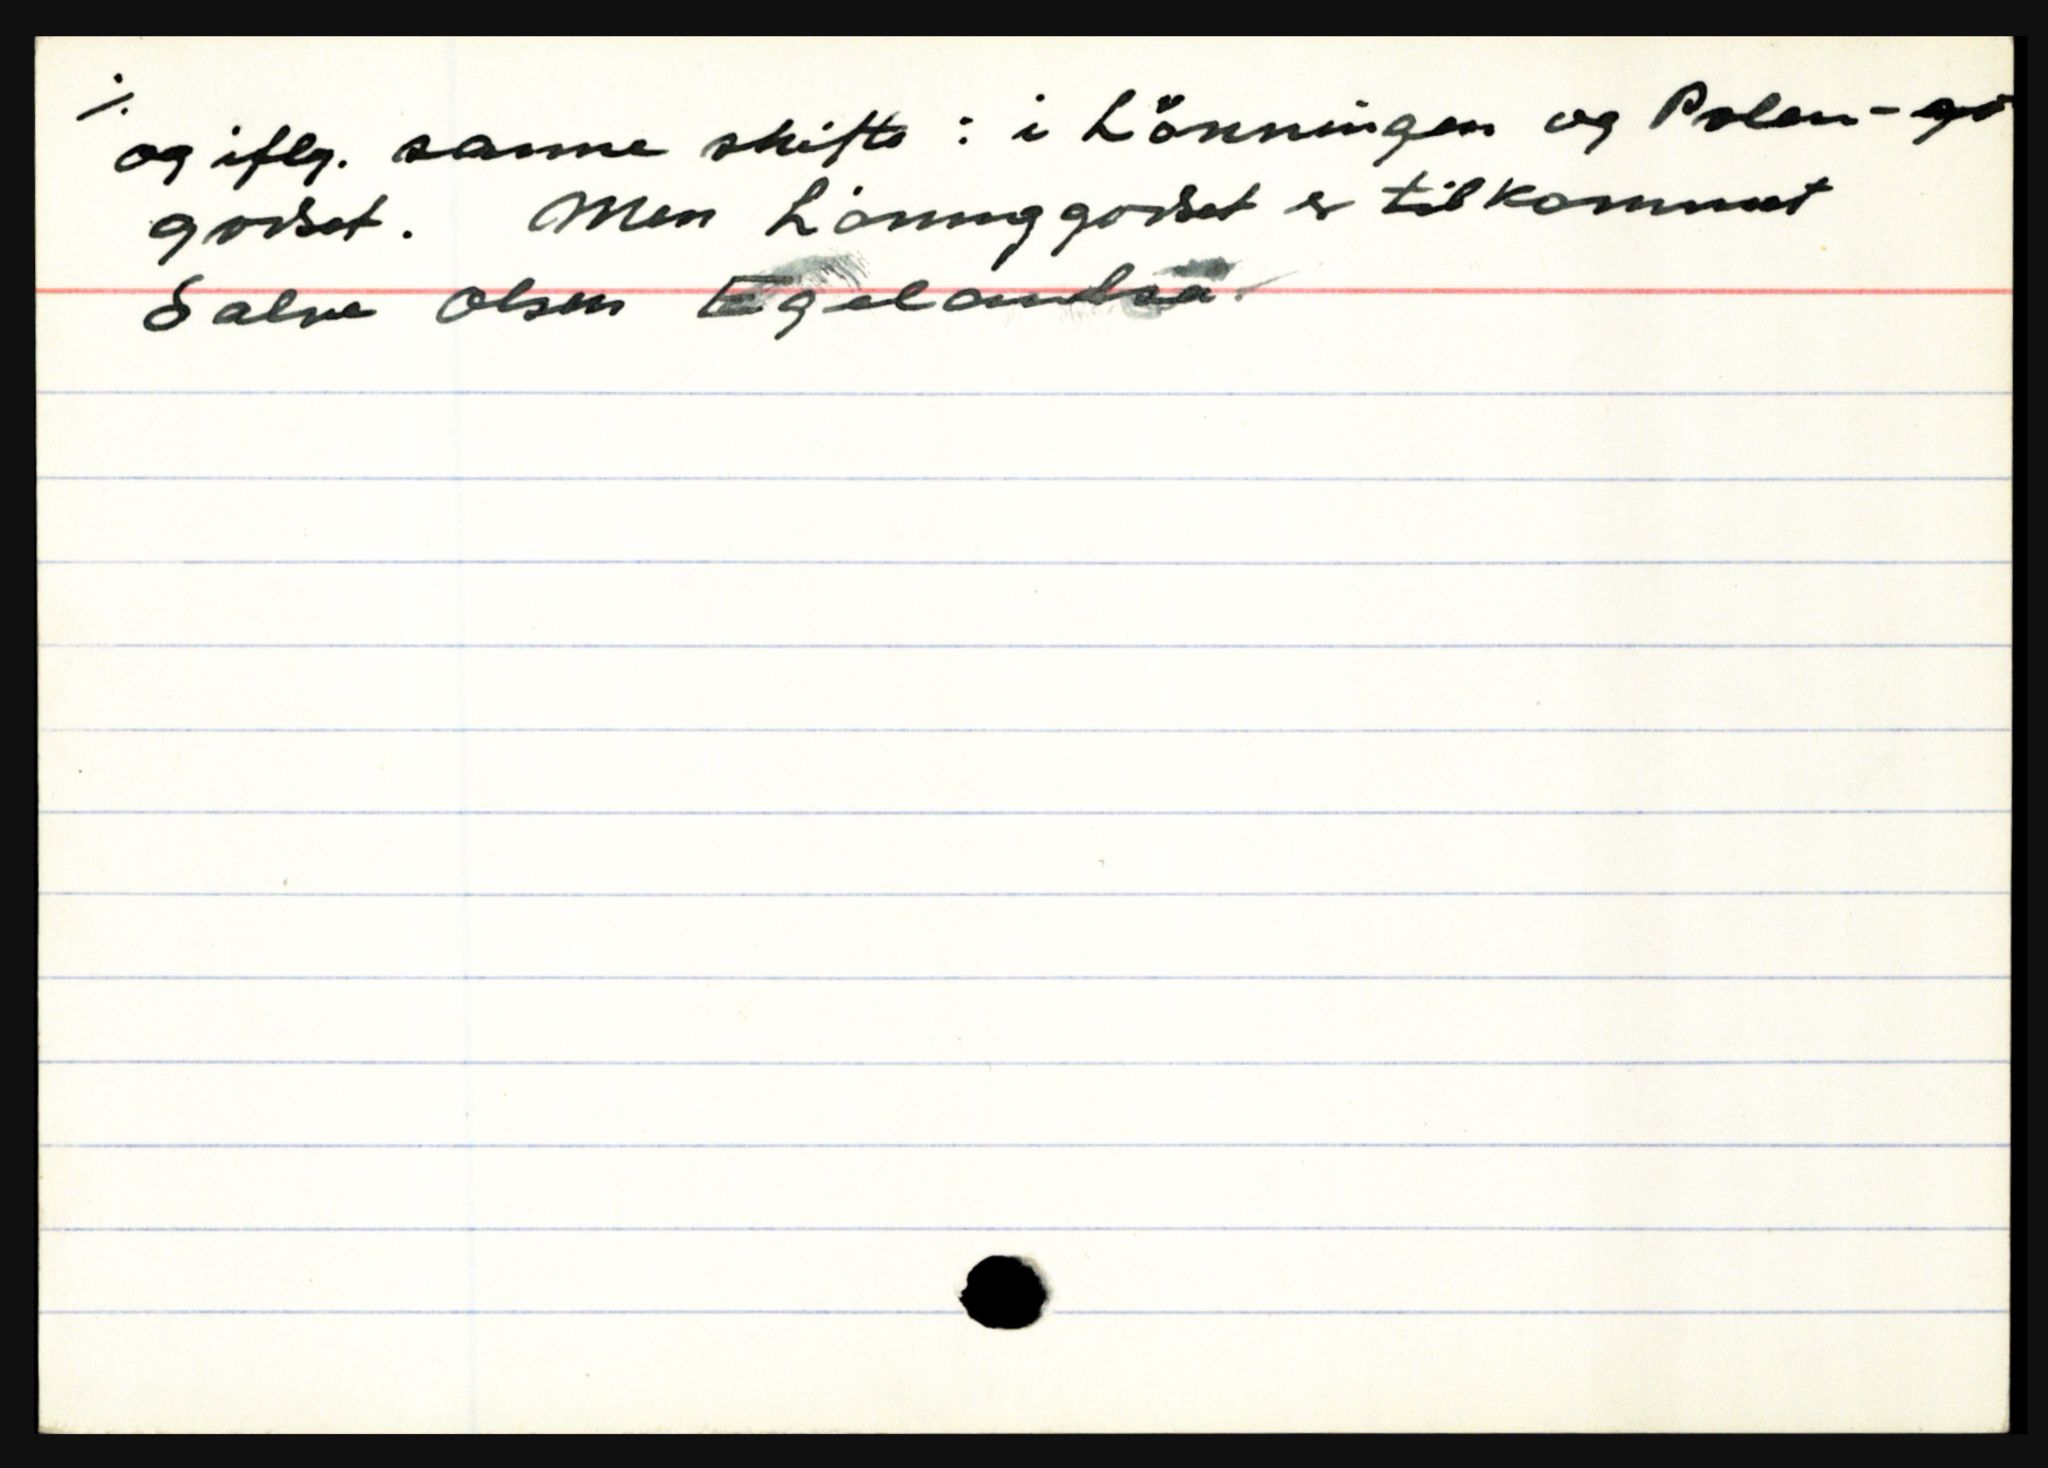 ./.
og iflg. samme skifte : i Lönningen og Polen-
godset. Men Lönninggodset er tilkommet
Salve Olsen Egelandså.